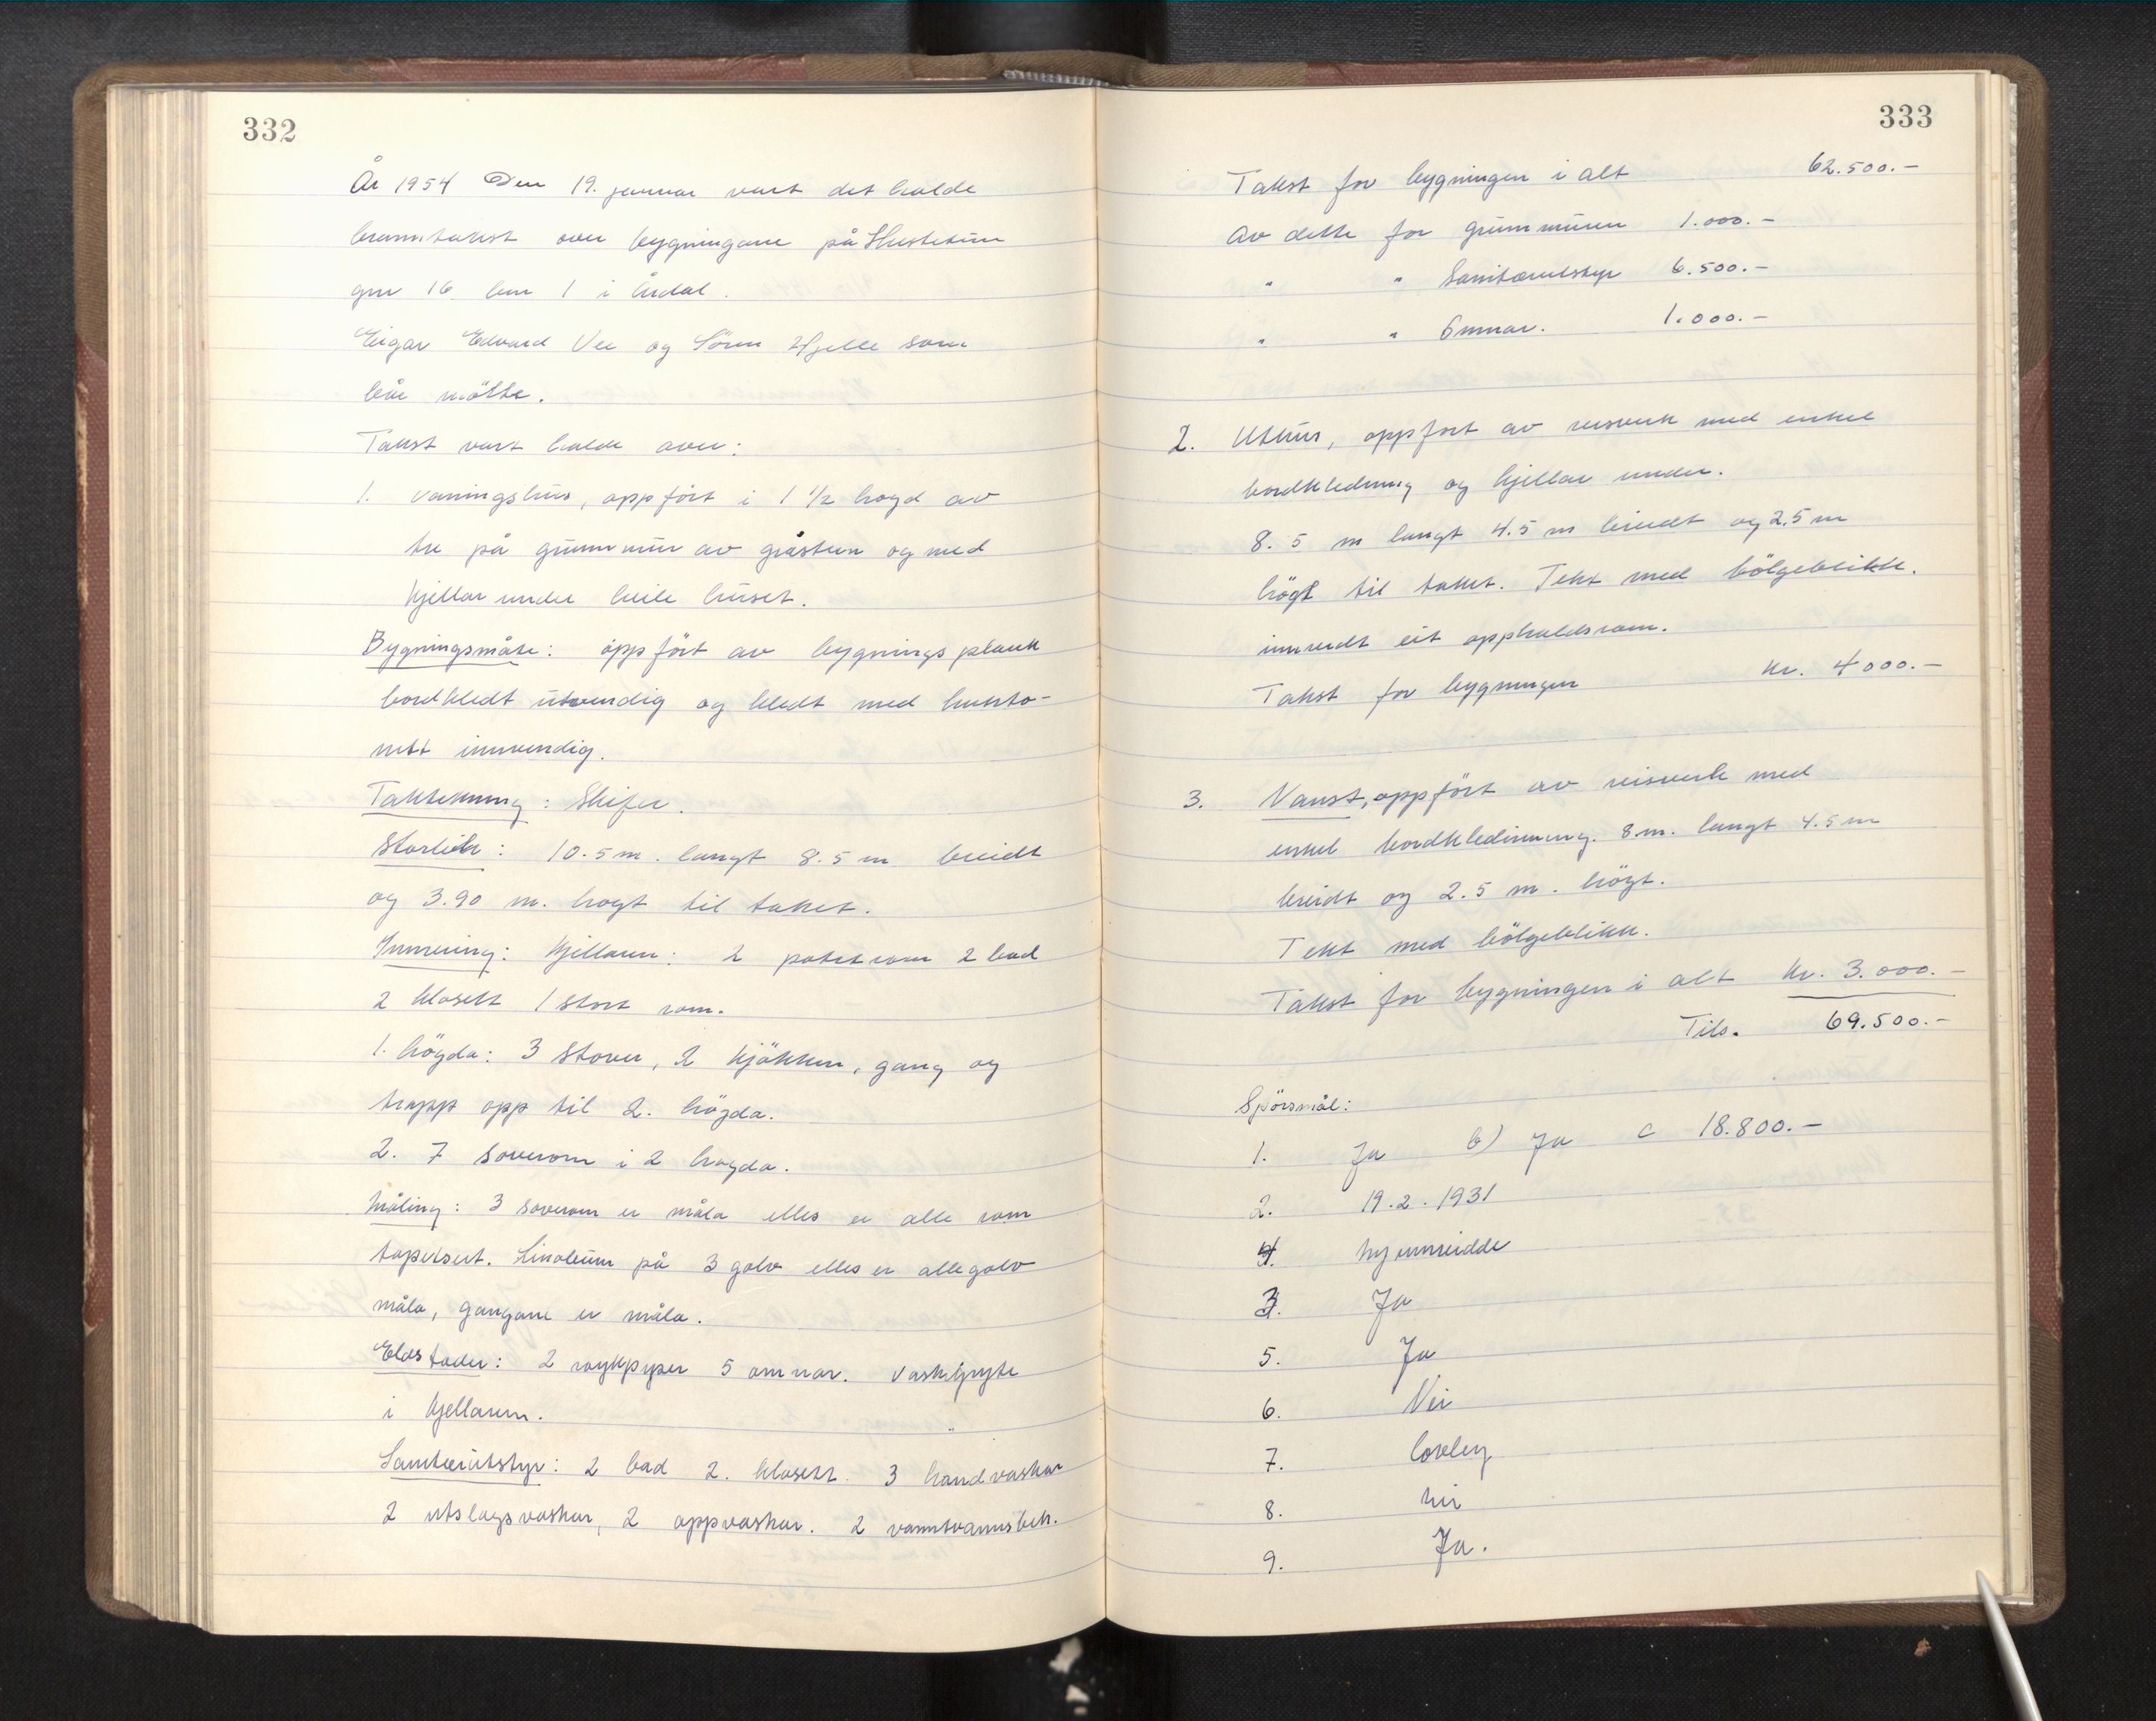 332
År 1954 Den 19. januar vart det halde
branntakst over bygningane på Hustetun
gnr 16 bnr 1 i Årdal.
Eigar Edvard Vee og Sören Hjelle som
båe mötte.
Takst vart halde over:
1. vaningshus, oppfört i 1 1/2 hogd av
tre på grunnmur av gråstein og med
kjellar under heile huset.
Bygningsmåte: oppfört av bygningsplank
bordkledt utvendig og kledt med hunto-
nitt innvendig.
Taktekning: Skifer.
Storleik: 10.5 m. langt 8.5 m breidt
og 3.90 m. hogt til taket.
Innreiing: Kjellaren: 2 potetrom 2 bad
2 klosett 1 stort rom.
1. högda: 3 stover, 2 kjökken, gang og
trapp opp til 2. högda.
2. 7 soverom i 2 hogda.
Måling: 3 soverom er måla elles er alle rom
tapetsert. Linoleum på 3 golv elles er alle golv
måla, gangane er måla.
Eldstader: 2 røykpyper 5 omnar. vaskegryte
i kjellaren.
Sanitærutstyr: 2 bad 2. klosett. 3 handvaskar
2 utslagsvaskar, 2 oppvaskar. 2 varmtvannsber.
333
Takst for bygningen i alt 62.500.-
Av dette for grunnmuren 1.000.-
" " Sanitærutstyr 6.500.-
" " Omnar. 1.000.-
2. Uthus, oppfort av reisverk med enkel
bordkledning og kjellar under.
8.5 m langt 4.5 m breidt og 2.5 m
högt til taket. Tekt med bölgeblikk.
innreidt eit oppholdsrom.
Takst for bygningen kr. 4000.-
3. Naust, oppfört av reisverk med
enkel bordkledinning. 8.m. langt 4.5 m
breidt og 2.5 m. högt.
Tekt med bölgeblikk.
Takst for bygningen i alt kr. 3.000.-
Tils. 69.500.-
Spörsmål:
1. Ja b) Ja c 18.800.-
2. 19.2.1931
4. ny innreidde
3. Ja
5. Ja
6. Nei
7.
8. nei
9. Ja.